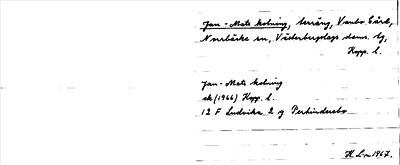 Jan-Mats kolning, terräng, Vanbo Särb,
Norrbärke sn, Västerbergslags doms. tg,
Kopp. l.
Jan-Mats kolning
ek (1966) Kopp. l.
12 F Ludvika 2 g Perhindersbo
H L-m 1967.